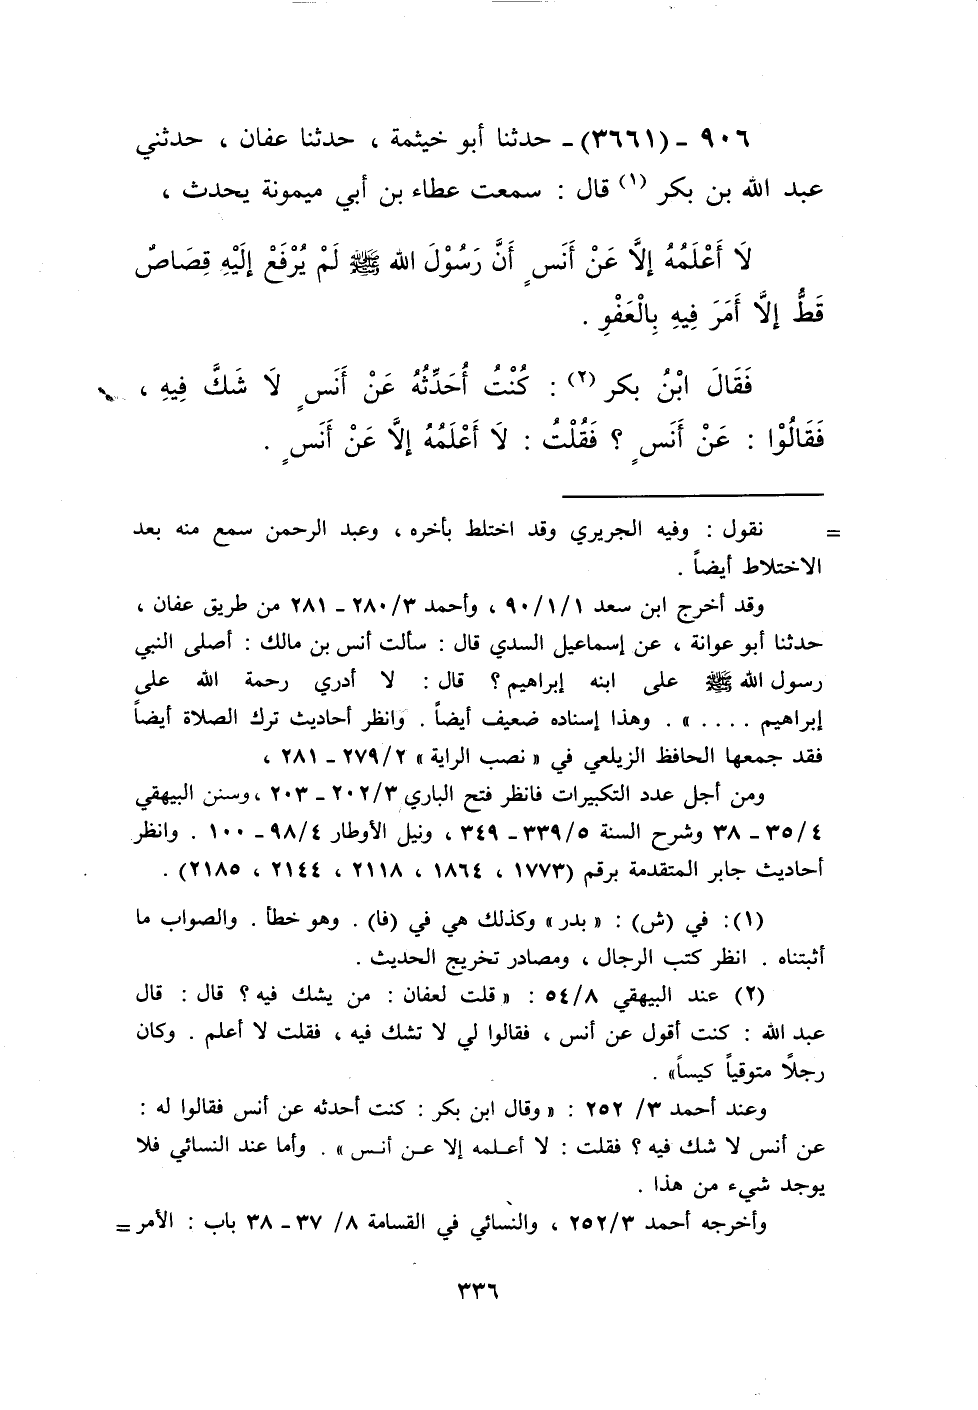 ٩٠٦ - (٣٦٦١) - حدثنا أبو خيثمة ، حدثنا عفان ، حدثني
عبد الله بن بكر (١) قال : سمعت عطاء بن أبي ميمونة يحدث ،
لَا أَعْلَمُهُ إلَّا عَنْ أَنَسٍ أَنَّ رَسُوْلَ الله ﷺ لَمْ يُرْفَعْ إلَيْهِ قِصَاصٌ
قَطُّ إلَّا أَمَرَ فِيهِ بِالْعَفْوِ .
فَقَالَ ابْنُ بكر (٢) : كُنْتُ أُحَدِّثُهُ عَنْ أَنَسٍ لَا شَكَّ فِيهِ ،
فَقَالُوْا : عَنْ أَنَسٍ ؟ فَقُلْتُ : لَا أَعْلَمُهُ إلَّا عَنْ أَنَسٍ .
= نقول : وفيه الجريري وقد اختلط بأخره ، وعبد الرحمن سمع منه بعد
الاختلاط أيضاً .
وقد أخرج ابن سعد ٩٠/١/١ ، وأحمد ٢٨٠/٣ - ٢٨١ من طريق عفان ،
حدثنا أبو عوانة ، عن إسماعيل السدي قال : سألت أنس بن مالك : أصلى النبي
رسول الله ﷺ على ابنه إبراهيم ؟ قال : لا أدري رحمة الله على
إبراهيم . . . . » . وهذا إسناده ضعيف أيضاً . وانظر أحاديث ترك الصلاة أيضاً
فقد جمعها الحافظ الزيلعي في « نصب الراية » ٢٧٩/٢ - ٢٨١ ،
ومن أجل عدد التكبيرات فانظر فتح الباري ٢٠٢/٣ - ٢٠٣ ، وسنن البيهقي
٣٥/٤ - ٣٨ وشرح السنة ٣٣٩/٥ - ٣٤٩ ، ونيل الأوطار ٩٨/٤ - ١٠٠ . وانظر
أحاديث جابر المتقدمة برقم (١٧٧٣ ، ١٨٦٤ ، ٢١١٨ ، ٢١٤٤ ، ٢١٨٥) .
(١): في (ش) : « بدر » وكذلك هي في (فا) . وهو خطأ . والصواب ما
أثبتناه . انظر كتب الرجال ، ومصادر تخريج الحديث .
(٢) عند البيهقي ٥٤/٨ : « قلت لعفان : من يشك فيه ؟ قال : قال
عبد الله : كنت أقول عن أنس ، فقالوا لي لا تشك فيه ، فقلت لا أعلم . وكان
رجلاً متوقياً كيساً» .
وعند أحمد ٣/ ٢٥٢ : « وقال ابن بكر : كنت أحدثه عن أنس فقالوا له :
عن أنس لا شك فيه ؟ فقلت : لا أعلمه إلا عن أنس » . وأما عند النسائي فلا
يوجد شيء من هذا .
وأخرجه أحمد ٢٥٢/٣ ، والنسائي في القسامة ٨/ ٣٧ - ٣٨ باب : الأمر =
٣٣٦